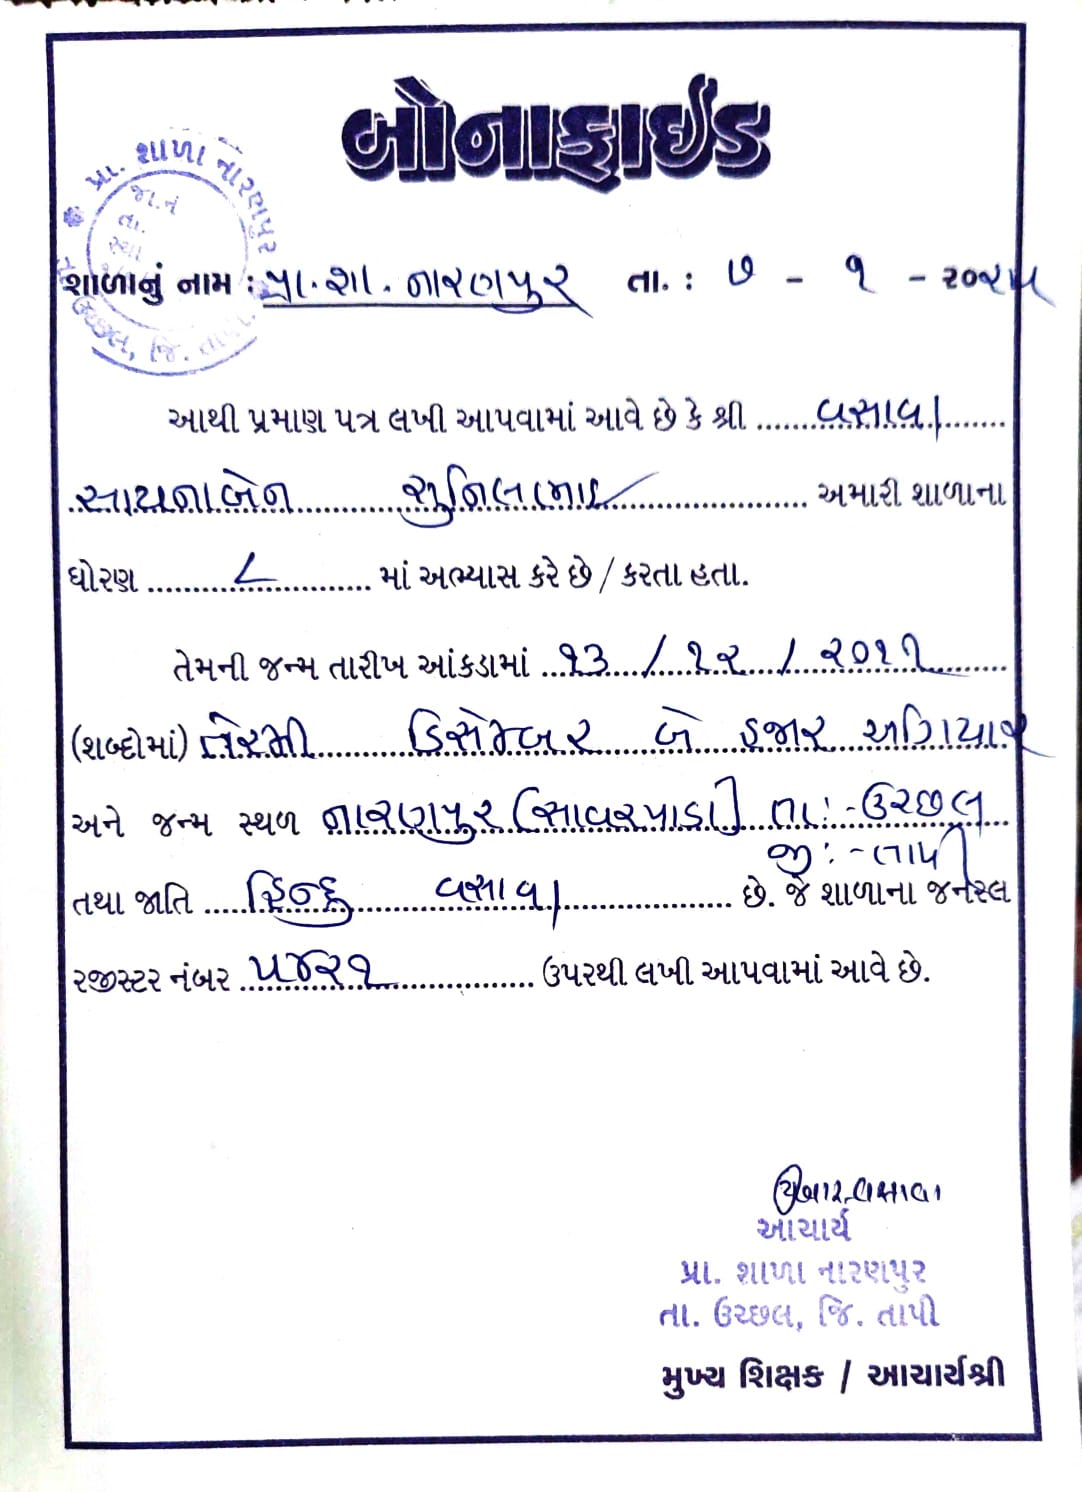 બોનાફાઈડ
પ્રા. શાળા નારણપુર
જા.નં
તા.
સ્થા
ઉચ્છલ, જિ. તાપી
શાળાનું નામ : પ્રા. શા. નારણપુર તા. : ૭ - ૧ - ૨૦૨૫
આથી પ્રમાણ પત્ર લખી આપવામાં આવે છે કે શ્રી ......વસાવા......
સાયનાબેન સુનિલભાઇ ............ અમારી શાળાના
ધોરણ ........૮........ માં અભ્યાસ કરે છે / કરતા હતા.
તેમની જન્મ તારીખ આંકડામાં ...૧૩ / ૧૨ / ૨૦૧૧......
(શબ્દોમાં) તેરમી ડિસેમ્બર બે હજાર અગિયાર
અને જન્મ સ્થળ નારણપુર (સાવરપાડા) તા:- ઉચ્છલ
જી:- તાપી
તથા જાતિ ....હિન્દુ વસાવા............ છે. જે શાળાના જનરલ
રજીસ્ટર નંબર ..૫૪૨૧............ ઉપરથી લખી આપવામાં આવે છે.
આચાર્ય
પ્રા. શાળા નારણપુર
તા. ઉચ્છલ, જિ. તાપી
મુખ્ય શિક્ષક / આચાર્યશ્રી